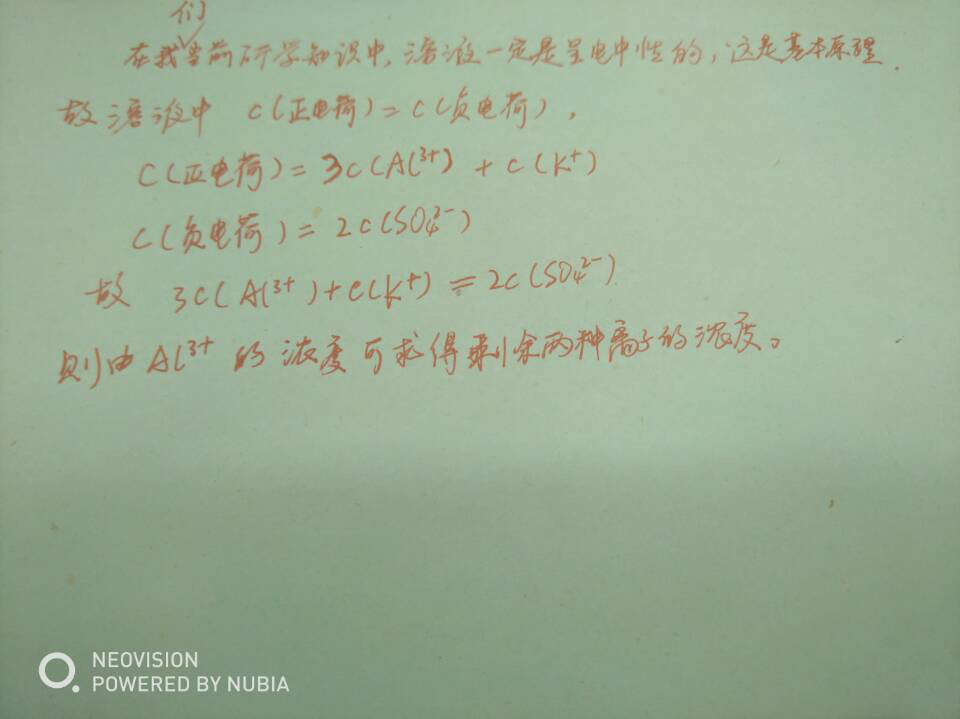 们
在我当前所学知识中,溶液一定是呈电中性的,这是基本原理.
故溶液中 c(正电荷)=c(负电荷),
C(正电荷)=3c(Al³⁺)+c(K⁺)
C(负电荷)=2c(SO₄²⁻)
故 3c(Al³⁺)+c(K⁺)=2c(SO₄²⁻)
则由Al³⁺的浓度可求得剩余两种离子的浓度。
NEOVISION
POWERED BY NUBIA